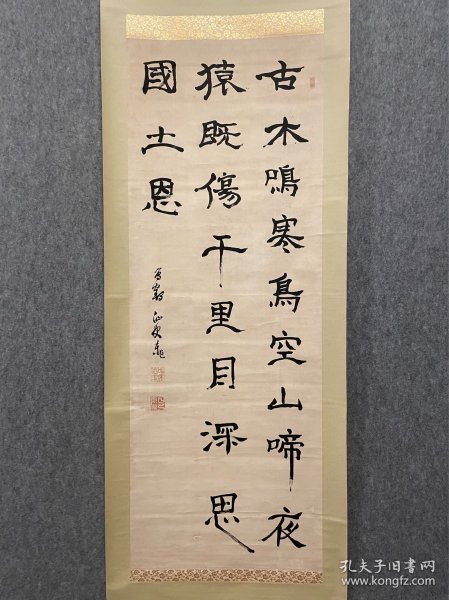 古木鳴寒鳥空山啼夜
猿既傷千里目深思
國士恩
孔夫子旧书网
www.kongfz.com